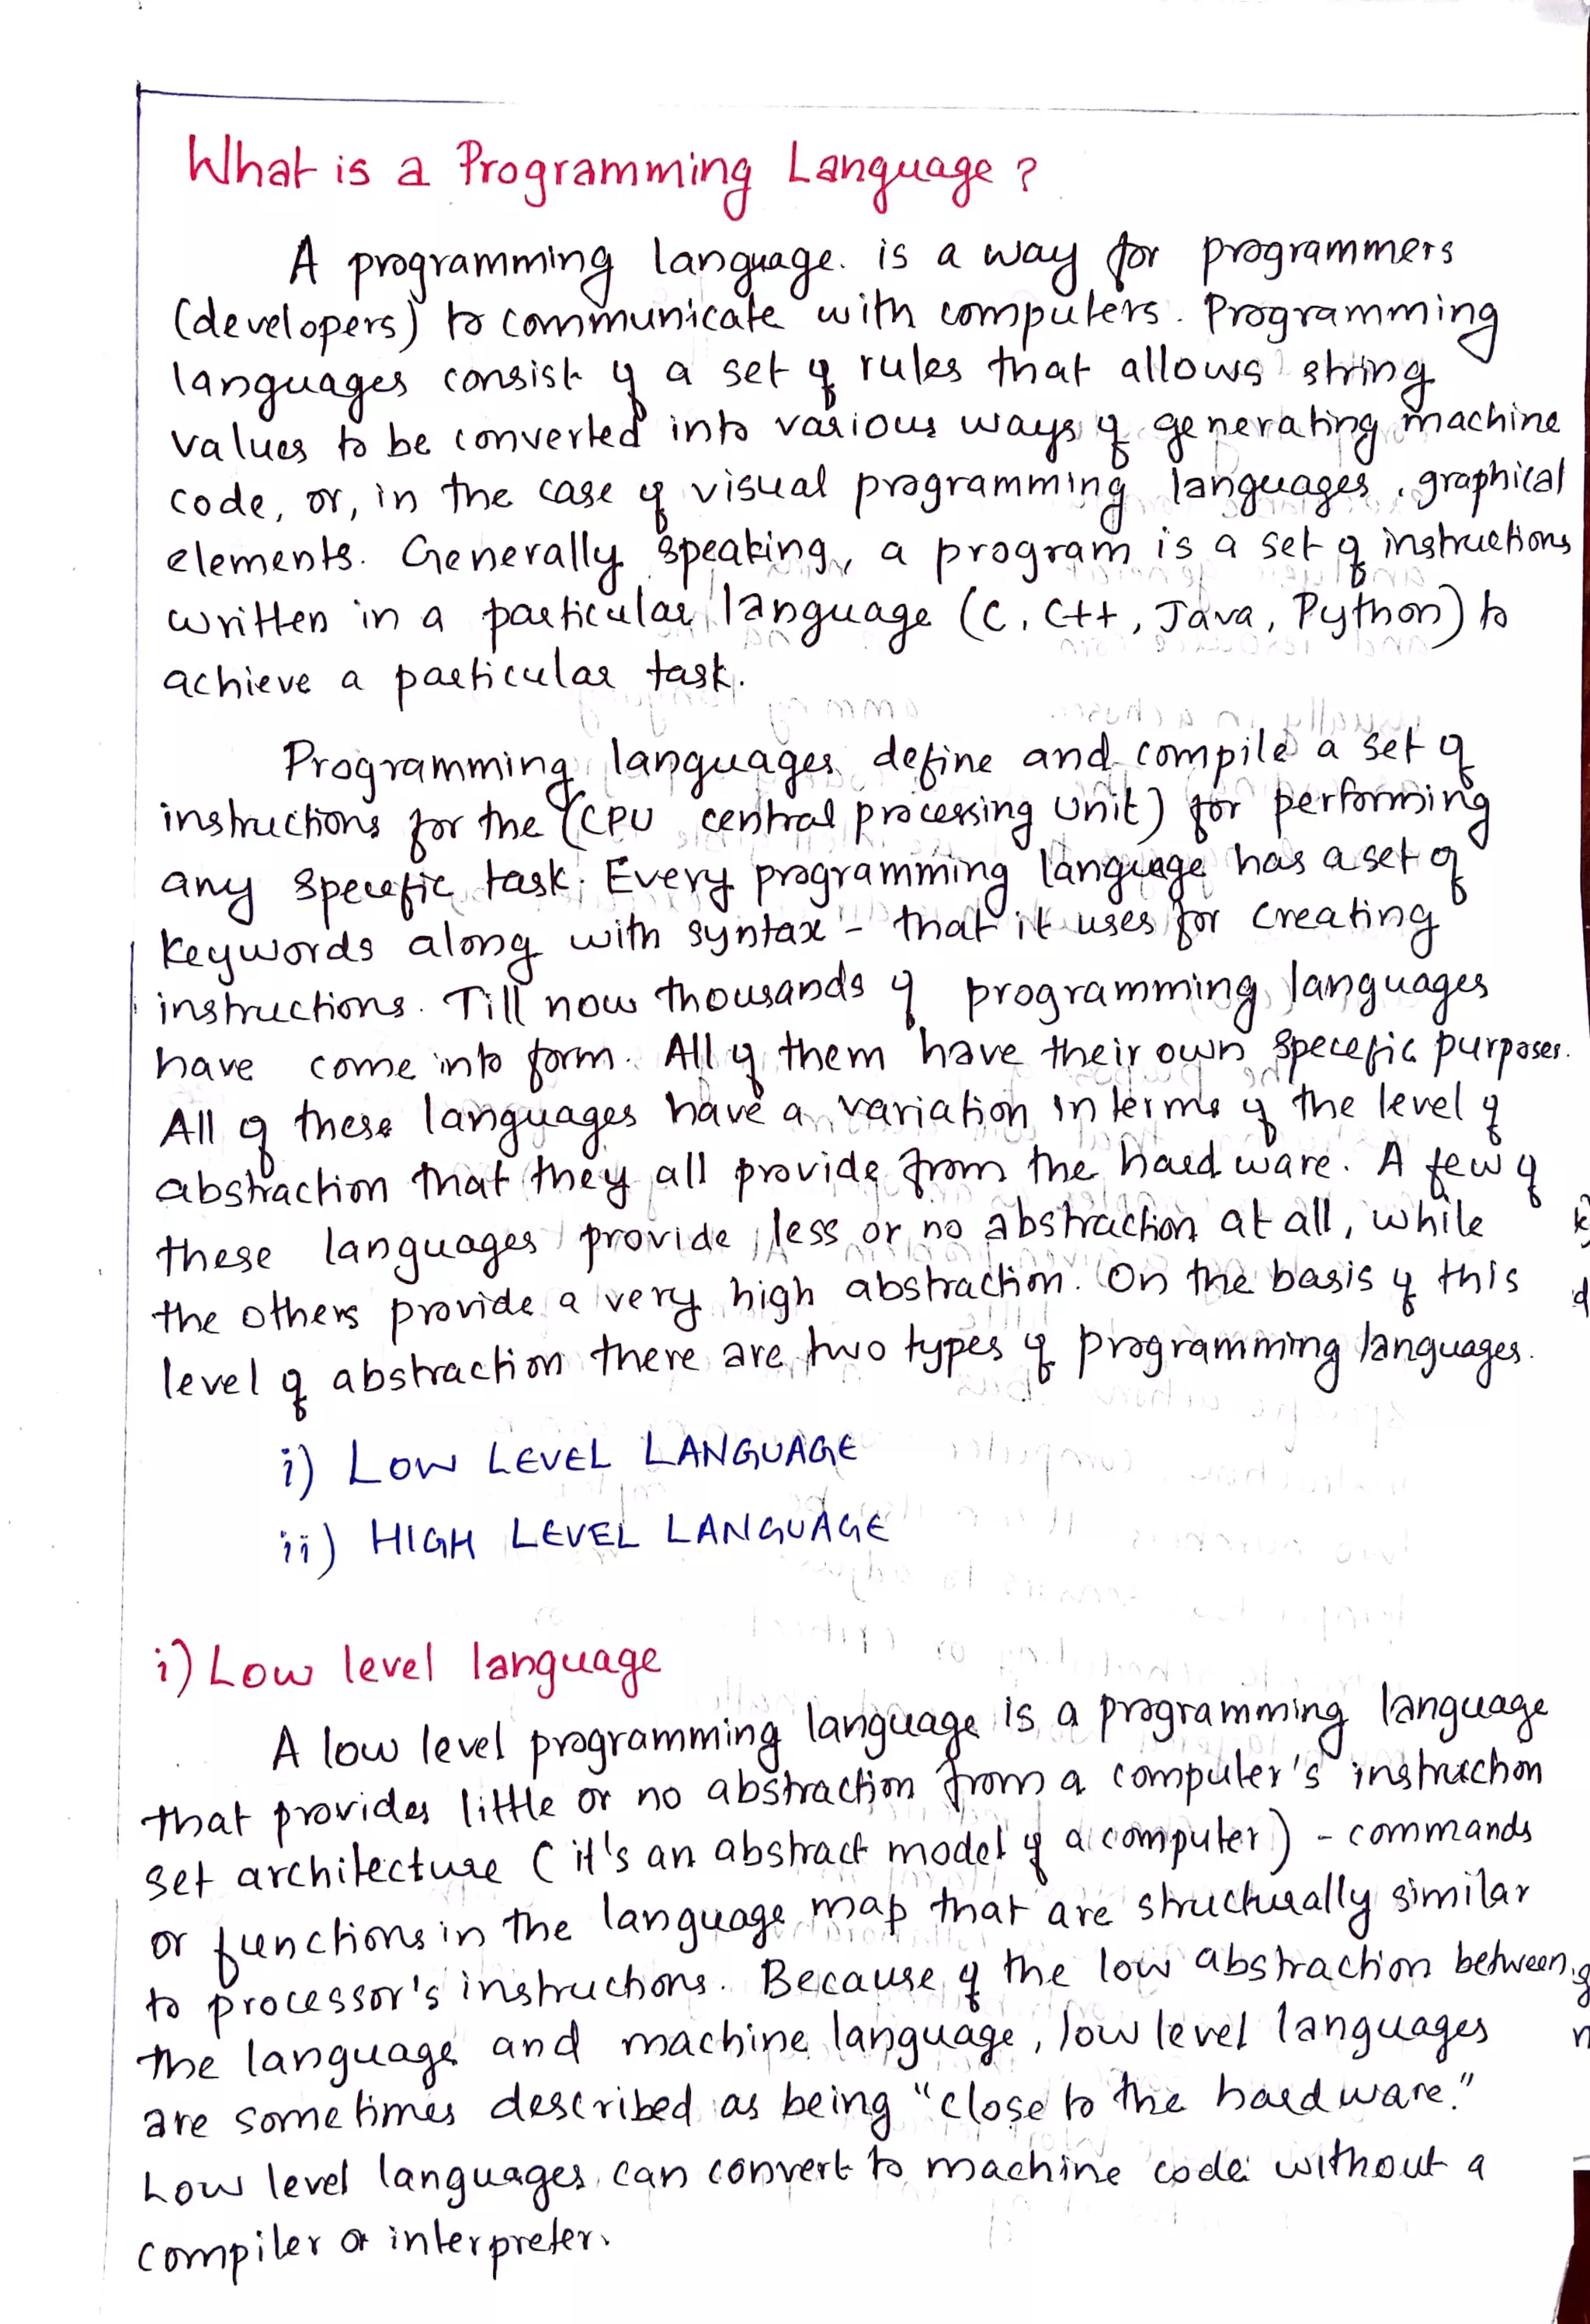 What is a Programming Language?
A programming language. is a way for programmers
(developers) to communicate with computers. Programming
languages consist of a set of rules that allows string
values to be converted into various ways of generating machine
code, or, in the case of visual programming languages, graphical
elements. Generally speaking, a program is a set of instructions
written in a particular language (C, C++, Java, Python) to
achieve a particular task.
Programming languages define and compile a set of
instructions for the (CPU central processing Unit) for performing
any specefic task. Every programming language has a set of
keywords along with syntax - that it uses for creating
instructions. Till now thousands of programming languages
have come into form. All of them have their own specefic purposes.
All of these languages have a variation in terms of the level of
abstraction that they all provide from the hardware. A few of
these languages provide less or no abstraction at all, while
the others provide a very high abstraction. On the basis of this
level of abstraction there are two types of programming languages.
i) LOW LEVEL LANGUAGE
ii) HIGH LEVEL LANGUAGE
i) Low level language
A low level programming language is a programming language
that provides little or no abstraction from a computer's instruction
set architecture (it's an abstract model of a computer) - commands
or functions in the language map that are structurally similar
to processor's instructions. Because of the low abstraction between
the language and machine language, low level languages
are sometimes described as being "close to the hardware."
Low level languages can convert to machine code without a
compiler or interpreter.